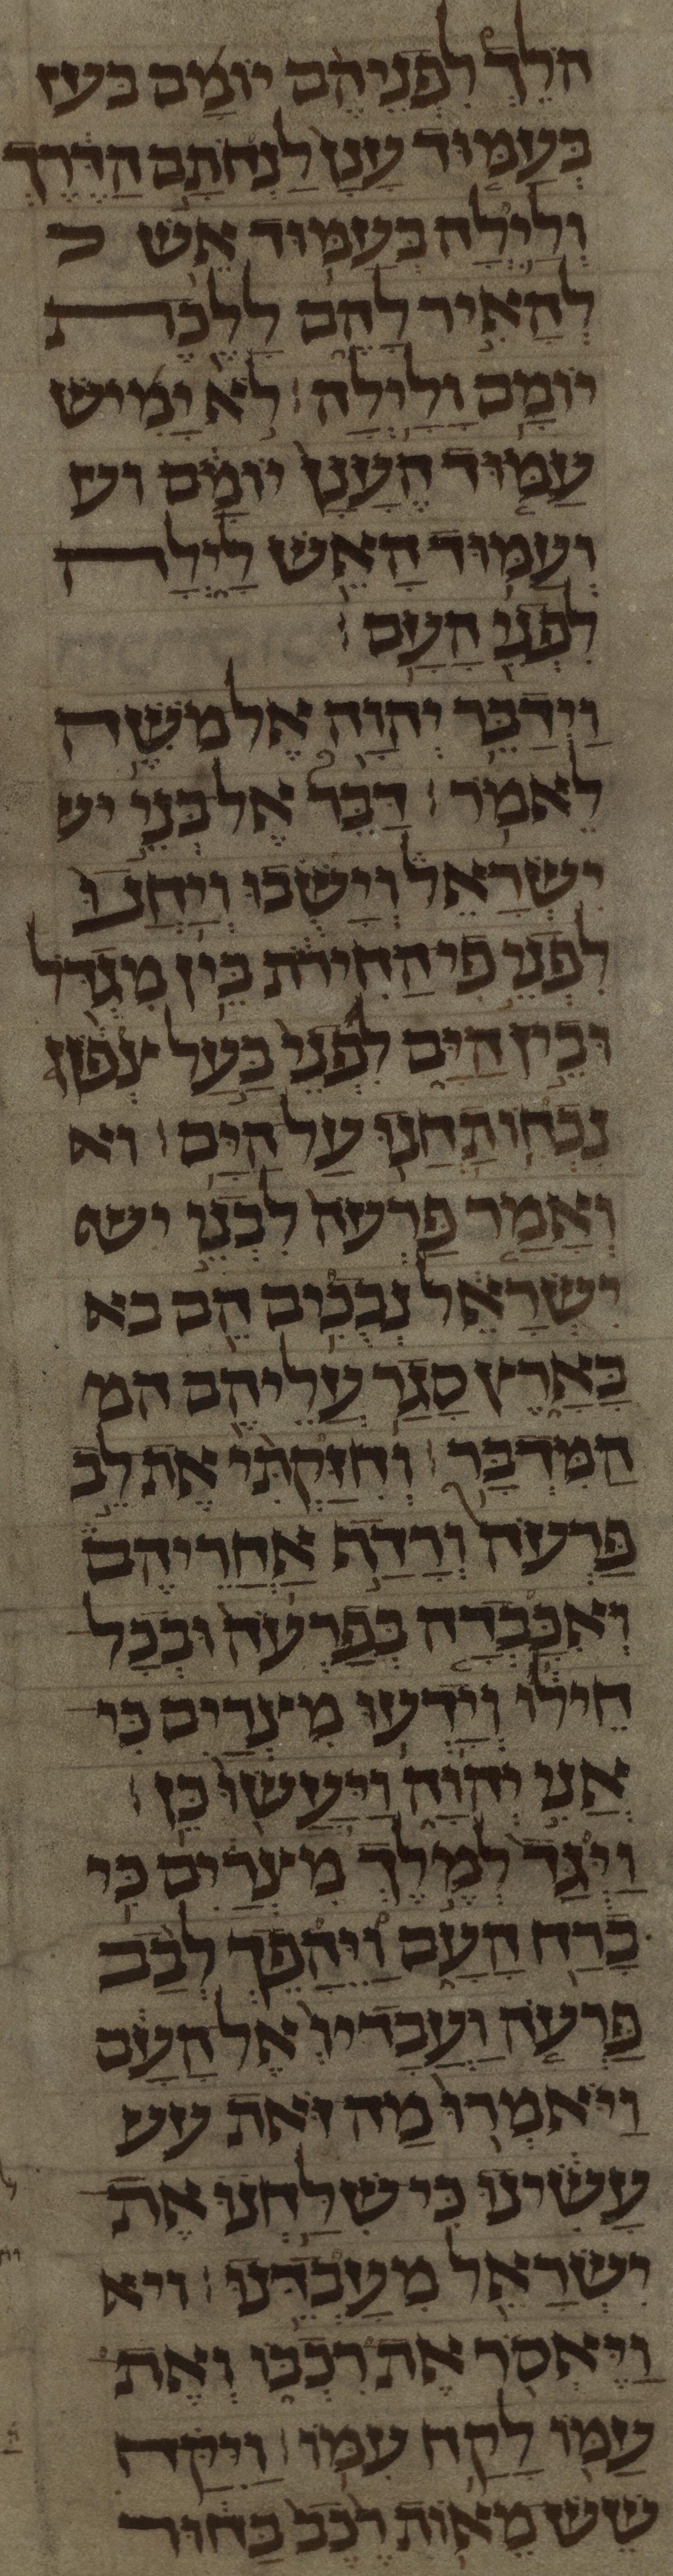 הֹלֵךְ לִפְנֵיהֶם יוֹמָם בעז
בְּעַמּוּד עָנָן לַנְחֹתָם הַדֶּרֶךְ
וְלַיְלָה בְּעַמּוּד אֵשׁ ל
לְהָאִיר לָהֶם לָלֶכֶת
יוֹמָם וָלָיְלָה׃ לֹא יָמִישׁ
עַמּוּד הֶעָנָן יוֹמָם וע
וְעַמּוּד הָאֵשׁ לָיְלָה
לִפְנֵי הָעָם׃
וַיְדַבֵּר יְהוָה אֶל מֹשֶׁה
לֵּאמֹר׃ דַּבֵּר אֶל בְּנֵי יש
יִשְׂרָאֵל וְיָשֻׁבוּ וְיַחֲנוּ
לִפְנֵי פִּי הַחִירֹת בֵּין מִגְדֹּל
וּבֵין הַיָּם לִפְנֵי בַּעַל צְפֹן
נִכְחוֹ תַחֲנוּ עַל הַיָּם׃ וא
וְאָמַר פַּרְעֹה לִבְנֵי יש
יִשְׂרָאֵל נְבֻכִים הֵם בא
בָּאָרֶץ סָגַר עֲלֵיהֶם המ
הַמִּדְבָּר׃ וְחִזַּקְתִּי אֶת לֵב
פַּרְעֹה וְרָדַף אַחֲרֵיהֶם
וְאִכָּבְדָה בְּפַרְעֹה וּבְכָל
חֵילוֹ וְיָדְעוּ מִצְרַיִם כִּי
אֲנִי יְהוָה וַיַּעֲשׂוּ כֵן׃
וַיֻּגַּד לְמֶלֶךְ מִצְרַיִם כִּי
בָרַח הָעָם וַיֵּהָפֵךְ לְבַב
פַּרְעֹה וַעֲבָדָיו אֶל הָעָם
וַיֹּאמְרוּ מַה זֹּאת עש
עָשִׂינוּ כִּי שִׁלַּחְנוּ אֶת
יִשְׂרָאֵל מֵעָבְדֵנוּ׃ ויא
וַיֶּאְסֹר אֶת רִכְבּוֹ וְאֶת
עַמּוֹ לָקַח עִמּוֹ׃ וַיִּקַּח
שֵׁשׁ מֵאוֹת רֶכֶב בָּחוּר